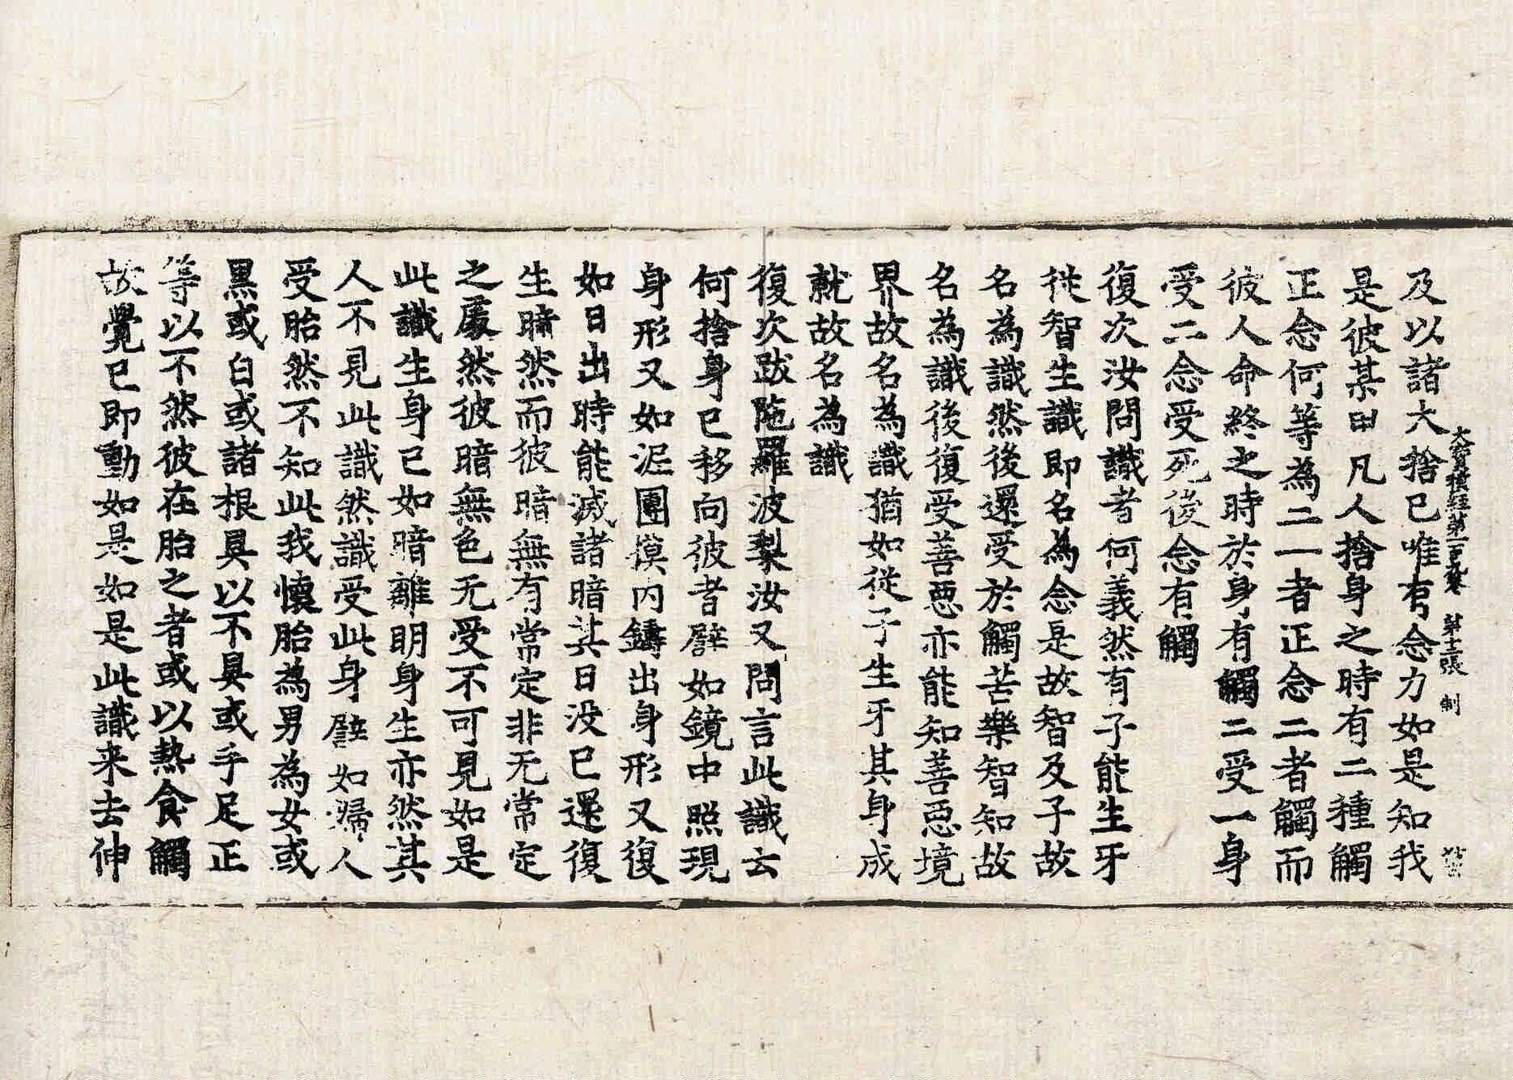 大寶積經第一百九卷 第十二張 制
及以諸大捨已唯有念力如是知我
是彼某甲凡人捨身之時有二種觸
正念何等為二一者正念二者觸而
彼人命終之時於身有觸二受一身
受二念受死後念有觸
復次汝問識者何義然有子能生牙
從智生識即名為念是故智及子故
名為識然後還受於觸苦樂智知故
名為識後復受善惡亦能知善惡境
界故名為識猶如從子生牙其身成
就故名為識
復次跋陁羅波梨汝又問言此識云
何捨身已移向彼者譬如鏡中照現
身形又如泥團摸內鑄出身形又復
如日出時能滅諸暗其日没已還復
生暗然而彼暗無有常定非无常定
之處然彼暗無色无受不可見如是
此識生身已如暗離明身生亦然其
人不見此識然識受此身譬如婦人
受胎然不知此我懷胎為男為女或
黑或白或諸根具以不具或手足正
等以不然彼在胎之者或以熱食觸
故覺已即動如是如是此識来去伸